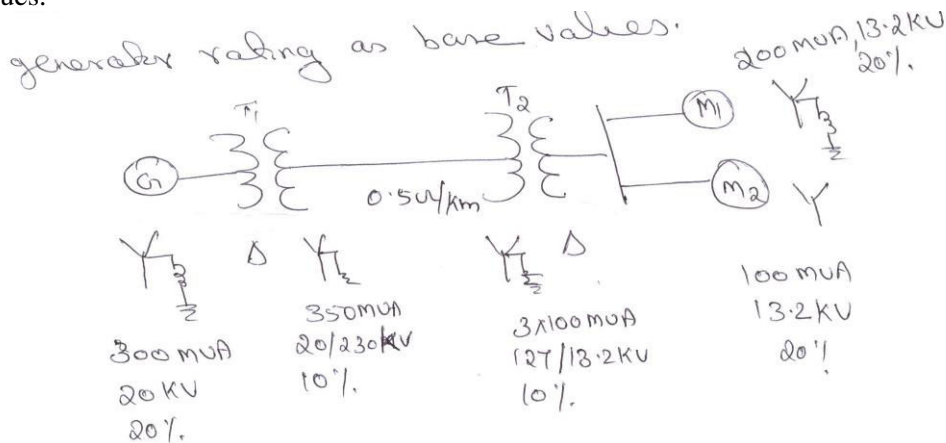 ues.
generator rating as base values.
200 MVA, 13.2 KV
20%.
T1
T2
G
M1
M2
0.5Ω/km
Δ
Δ
300 MVA
20 KV
20%.
350 MVA
20/230 KV
10%.
3x100 MVA
127/13.2 KV
10%.
100 MVA
13.2 KV
20%